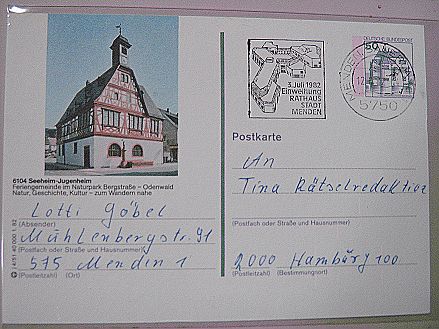 DEUTSCHE BUNDESPOST
50
3. Juli 1982
Einweihung
RATHAUS
STADT
MENDEN
5750
6104 Seeheim-Jugenheim
Feriengemeinde im Naturpark Bergstraße – Odenwald
Natur, Geschichte, Kultur – zum Wandern nahe
Postkarte
An
Tina Rätselredaktion
Lotti Göbel
(Absender)
Mühlenbergstr. 91
(Postfach oder Straße und Hausnummer)
575 Menden 1
(Postleitzahl) (Ort)
(Postfach oder Straße und Hausnummer)
2000 Hambürg 100
(Postleitzahl) (Bestimmungsort)